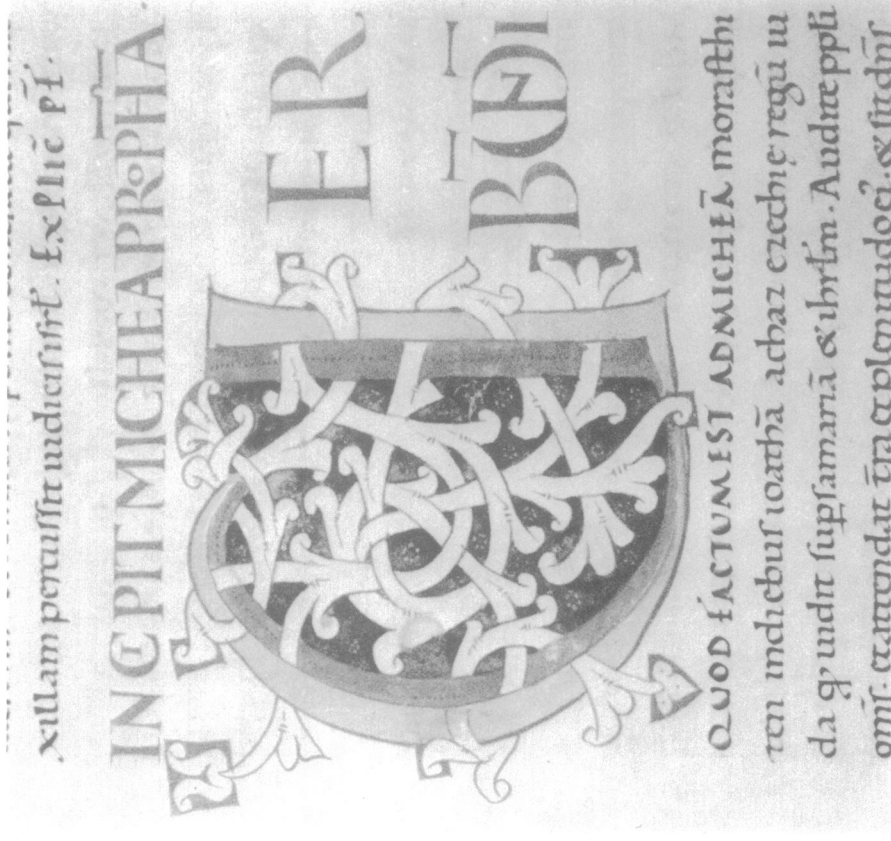 xillam percussit iudicis isrł. Explic̄ pł.
INCIPIT MICHEA PROPHA
VER
BŪ DN̄I
QUOD FACTUM EST AD MICHEĀ morasthi
ten indiebus ioathā achaz ezechię regū iu
da qđ uidit sup samariā & ihrłm. Audite ppłi
om̄s. & attendat t̄ra et plenitudo ei'. & sit dn̄s